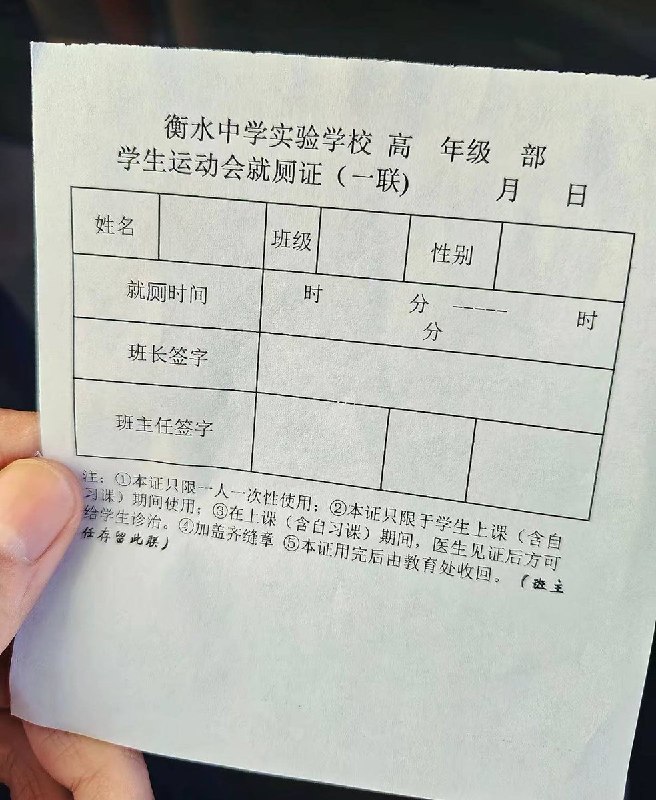 衡水中学实验学校 高 年级 部
学生运动会就厕证（一联） 月 日
姓名 班级 性别
就厕时间 时 分 ----- 时
分
班长签字
班主任签字
注：①本证只限一人一次性使用；②本证只限于学生上课（含自
习课）期间使用；③在上课（含自习课）期间，医生见证后方可
给学生诊治。④加盖齐缝章 ⑤本证用完后由教育处收回。（班主
任存留此联）